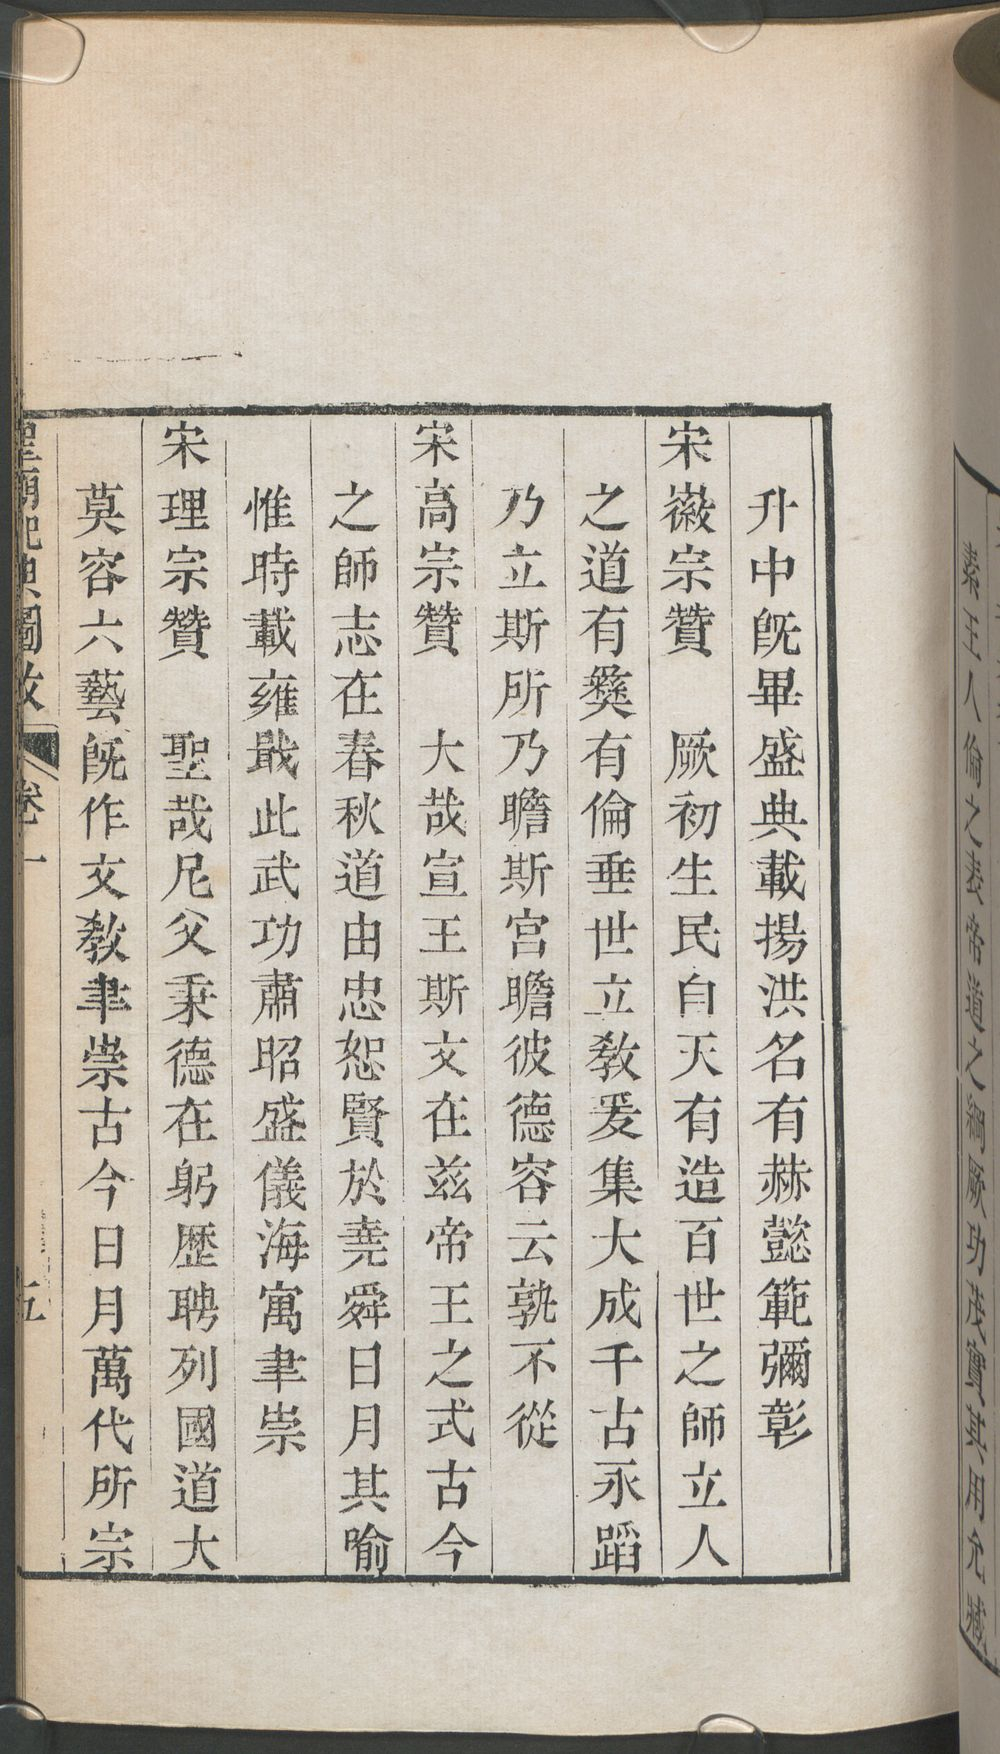 素王人倫之表帝道之綱厥功茂實其用允臧
升中旣畢盛典載揚洪名有赫懿範彌彰
宋徽宗贊　厥初生民自天有造百世之師立人
之道有彝有倫垂世立教爰集大成千古永蹈
乃立斯所乃瞻斯宮瞻彼德容云孰不從
宋高宗贊　大哉宣王斯文在兹帝王之式古今
之師志在春秋道由忠恕賢於堯舜日月其喻
惟時載雍戢此武功肅昭盛儀海寓聿崇
宋理宗贊　聖哉尼父秉德在躬歷聘列國道大
莫容六藝旣作文教聿崇古今日月萬代所宗
聖廟祀典圖攷　卷一　五